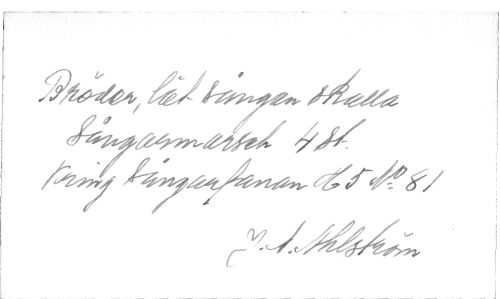 Bröder, låt sången skalla
Sångarmarsch 4 st.
Kring Sångarfanan H 5 No 81
J. A. Ahlström